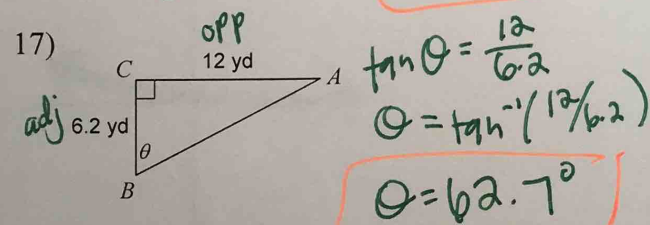 17)
opp
12 yd
C
A
adj 6.2 yd
θ
B
tan θ = 12/6.2
θ = tan⁻¹(12/6.2)
θ = 62.7°